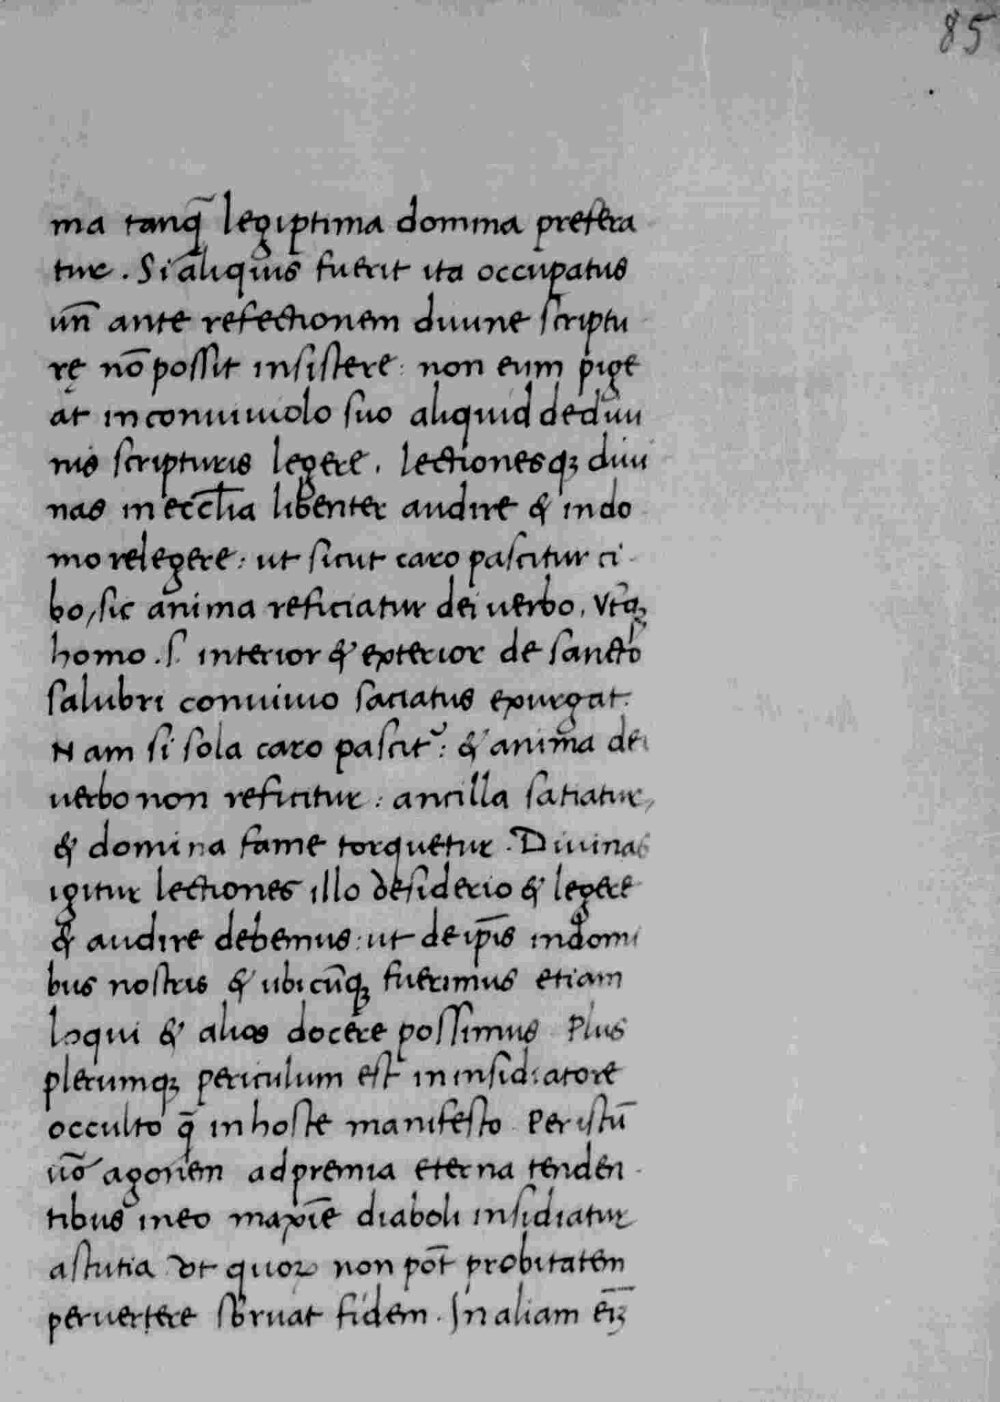 85
ma tanq̃ legiptima domina prefera
tur. Si aliquis fuerit ita occupatus
un̄ ante refectionem diuine scriptu
rę nō possit insistere: non eum pige
at in conuiuiolo suo aliquid de diui
nis scripturis legere. lectionesq; diui
nas in eccl̄ia libenter audire & in do
mo relegere: ut sicut caro pascitur ci
bo, sic anima reficiatur dei uerbo. Vtq̄;
homo .s. interior & exterior de sancto
salubri conuiuio saciatus expurgat.
Nam si sola caro pascit᷑: & anima dei
uerbo non reficitur: ancilla satiatur,
& domina fame torquetur. Diuinas
igitur lectiones illo desiderio & legere
& audire debemus: ut de ip̄is in domi
bus nostris & ubicūq; fuerimus etiam
loqui & alios docere possimus Plus
plerumq; periculum est in insidiatore
occulto q̄ in hoste manifesto Per istū
uō agonem ad premia eterna tenden
tibus in eo maxīe diaboli insidiatur
astutia Vt quoꝝ non pōt probitatem
peruertere sbruat fidem. In aliam eī;